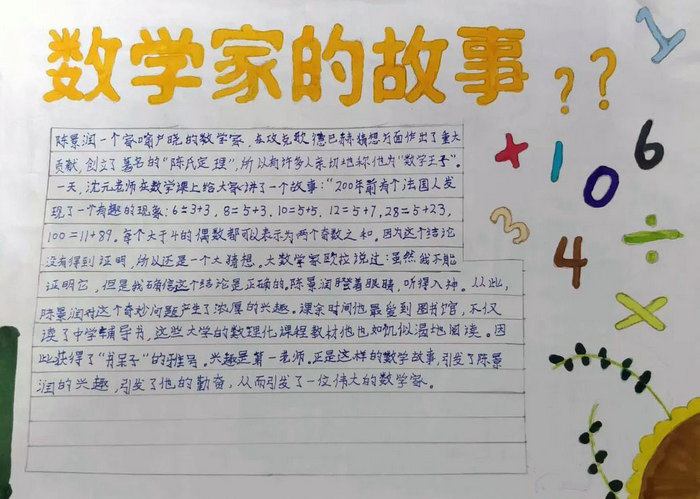 数学家的故事??
陈景润一个家喻户晓的数学家,在攻克歌德巴赫猜想方面作出了重大
贡献,创立了著名的"陈氏定理",所以有许多人亲切地称他为"数学王子"。
一天,沈元老师在数学课上给大家讲了一个故事:"200年前有个法国人发
现了一个有趣的现象:6=3+3,8=5+3,10=5+5,12=5+7,28=5+23,
100=11+89。每个大于4的偶数都可以表示为两个奇数之和。因为这个结论
没有得到证明,所以还是一个大猜想。大数学家欧拉说过:虽然我不能
证明它,但是我确信这个结论是正确的。陈景润瞪着眼睛,听得入神。从此,
陈景润对这个奇妙问题产生了浓厚的兴趣。课余时间他最爱到图书馆,不仅
读了中学辅导书,这些大学的数理化课程教材他也如饥似渴地阅读。因
此获得了"书呆子"的雅号。兴趣是第一老师。正是这样的数学故事,引发了陈景
润的兴趣,引发了他的勤奋,从而引发了一位伟大的数学家。
1
+ 1 0 6
3 4 ÷
×